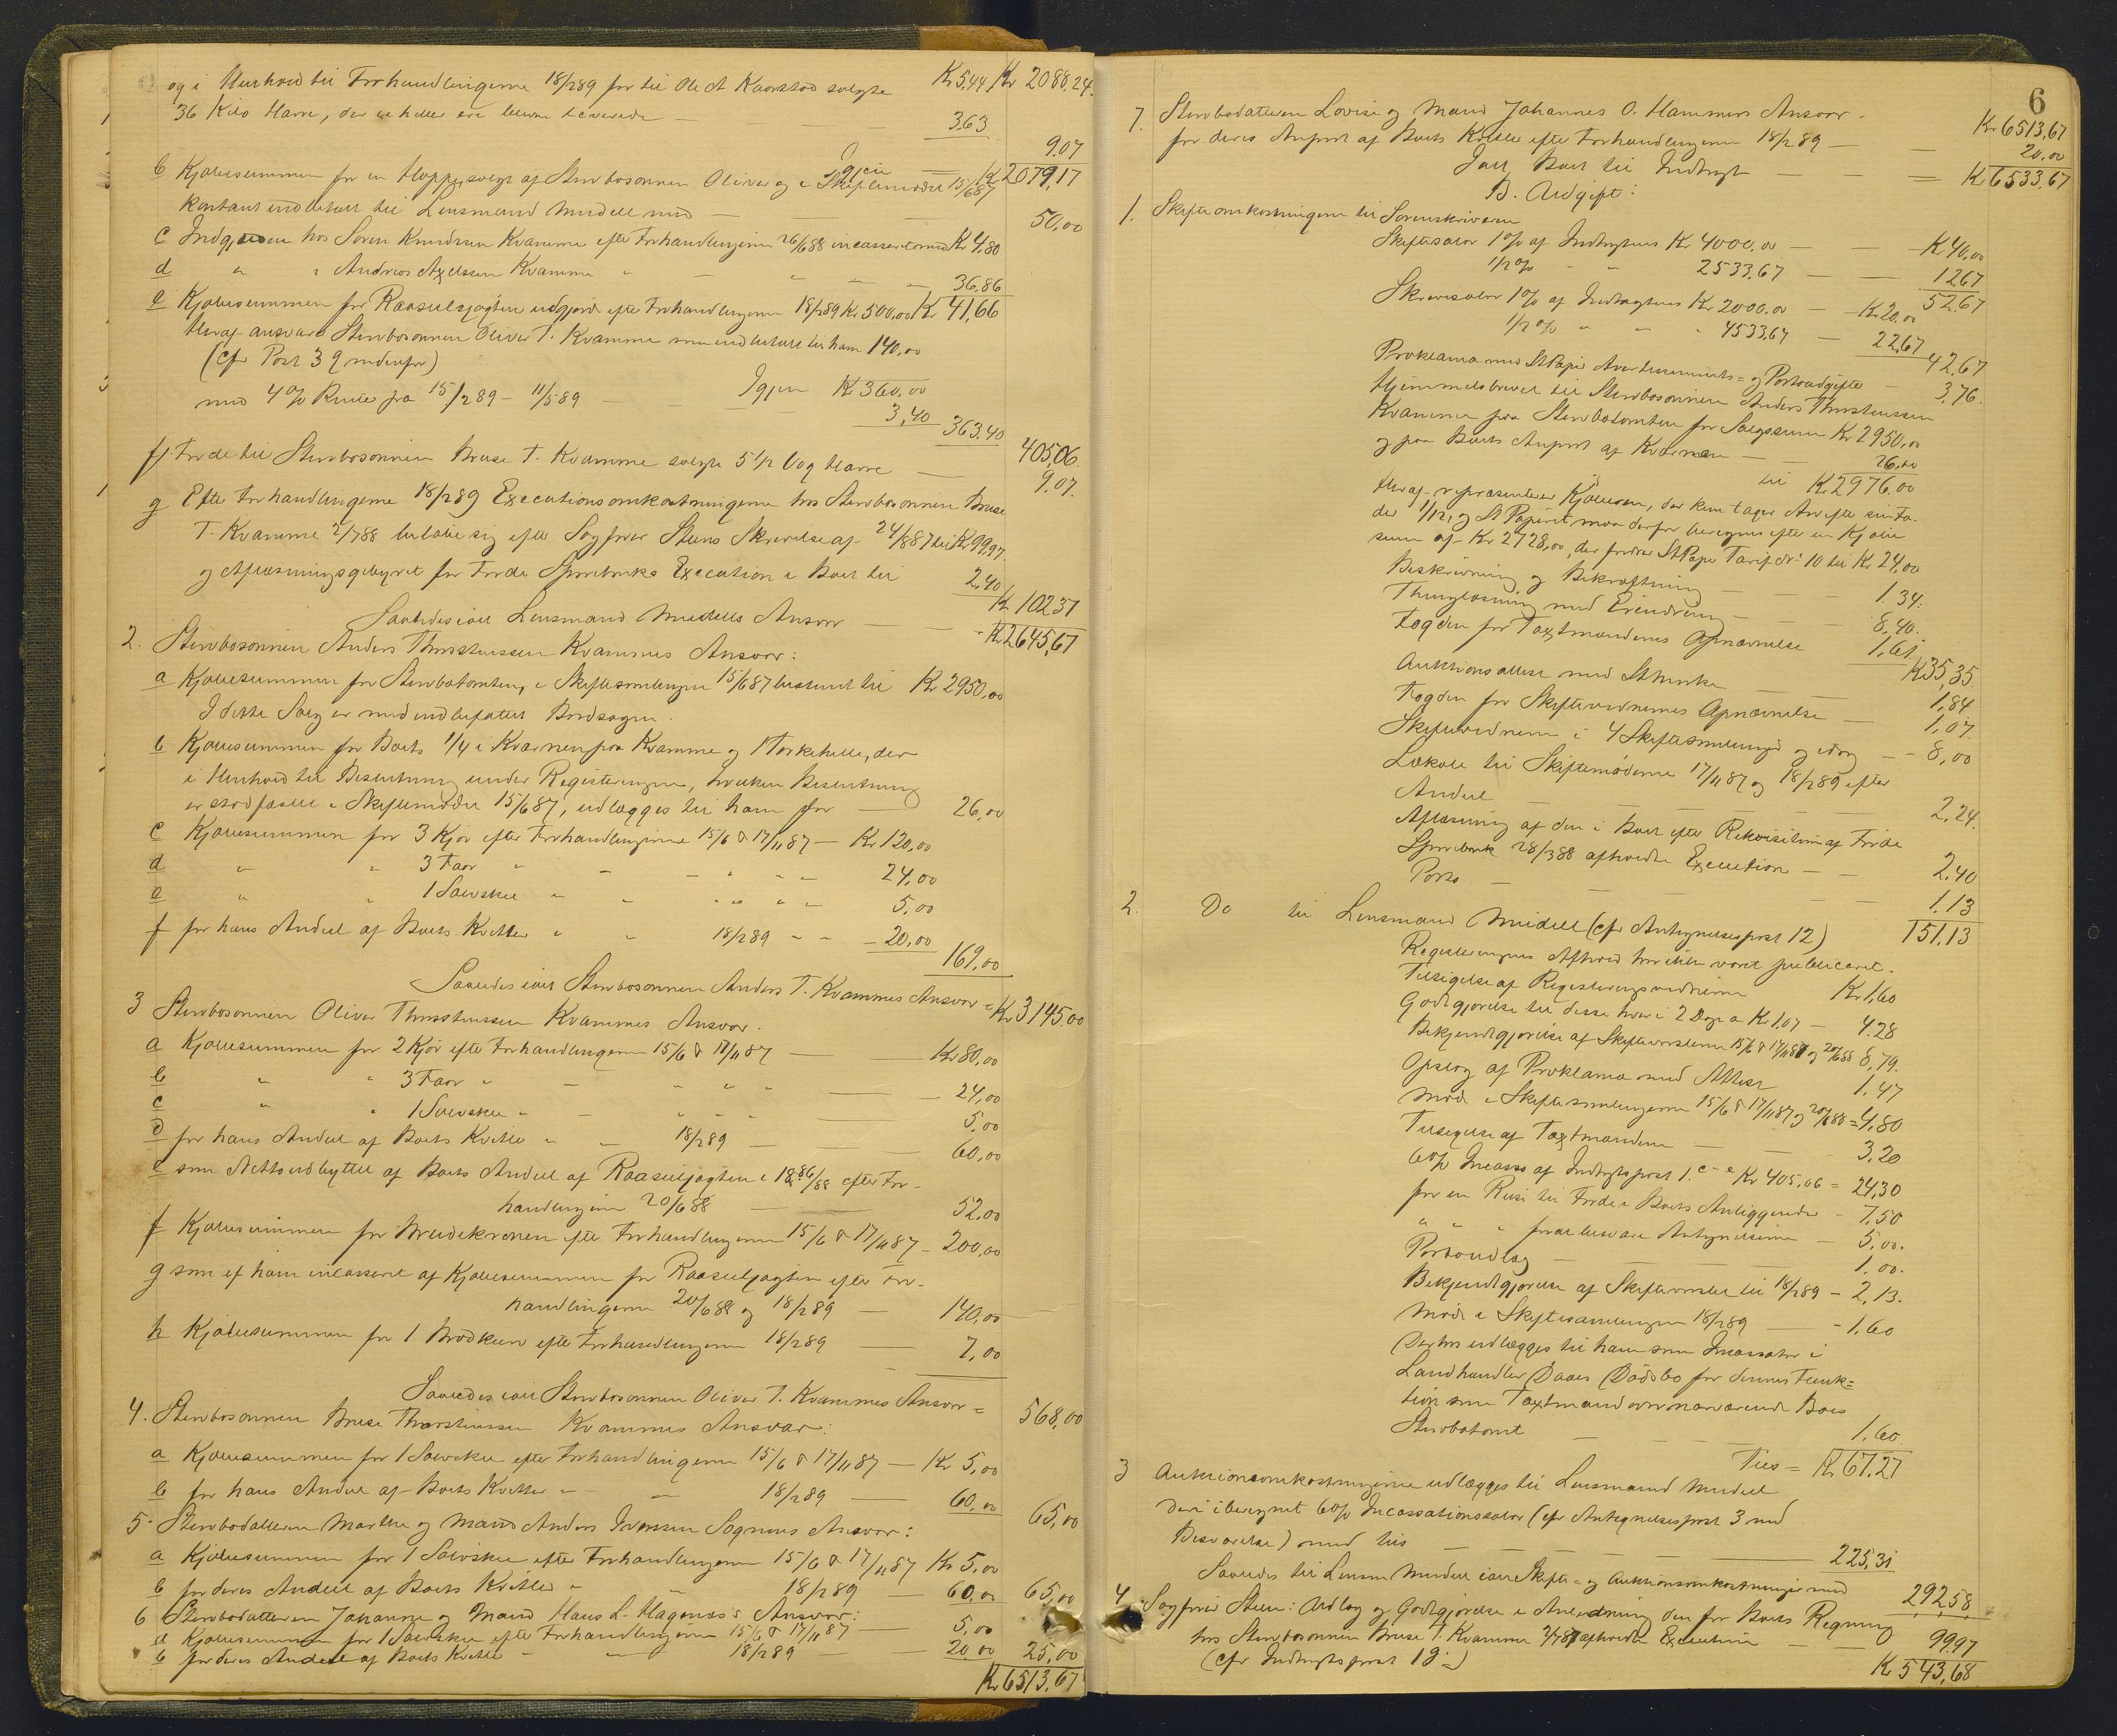 og i Henhold til Forhandlingerne 18/2 89 for til Ole A Kaarstad solgte Kr 5,44 Kr 2088,24.
36 Kilo Havre, der ei heller ere blevne leverede — 3,63
9,07
Igjen Kr 2079,17
b Kjøbesummen for en Hoppe, solgt af Stervbosønnen Oliver og i Skiftemødet 15/6 87
kontant indbetalt til Lensmand Meidell med — 50,00
c Indgjæden hos Søren Knudssen Kvamme efter Forhandlingerne 26/6 88 incasseret med Kr 4,80
d " " Andreas Axelsen Kvamme " — " — 36.86
Kr 41,66
e Kjøbesummen for Raaseiljagten udgjorde efter Forhandlingerne 18/2 89 Kr 500,00
Heraf ansvares Stervbosønnen Oliver T. Kvamme som indbetalt til ham 140,00
(cfr Post 3 g nedenfor)
Igjen Kr 360,00
med 4% Rente fra 15/2 89 - 11/5 89 — 3,40 363.40
405,06.
f For de til Stervbosønnen Bruse T. Kvamme solgte 5 1/2 Vog Havre — 9,07.
g Efter Forhandlingerne 18/2 89 Executionsomkostningerne hos Stervbosønnen Bruse
T. Kvamme 2/7 88 beløbe sig efter Sagfører Steens Skrivelse af 24/8 87 til Kr 99,97
og Aflæsningsgebyret for Førde Sparebanks Execution i Boet til 2,40
Kr 102,37
Saaledes ialt Lensmand Meidells Ansvar — Kr 2645,67
2. Stervbosønnen Anders Thorsteinssen Kvammes Ansvar:
a Kjøbesummen for Stervbotomten, i Skiftesamlingen 15/6 87 bestemt til Kr 2950,00
I dette Salg er med indbefattet Bordsagen.
b Kjøbesummen for Boets 1/4 i Kværnen paa Kvamme og Tørkehelle, der
i Henhold til Beslutning under Registeringen, hvilken Beslutning
er stadfæstet i Skiftemødet 15/6 87, udlægges til ham for — 26,00
c Kjøbesummen for 3 Kjør efter Forhandlingerne 15/6 & 17/11 87 — Kr 120,00
d " " 3 Faar " — " — 24,00
e " " 1 Sølvskee " " " — 5,00
f for hans Andeel af Boets Kvitler " " 18/2 89 — 20,00
169,00
Saaledes ialt Stervbosønnen Anders T. Kvammes Ansvar = Kr 3145.00
3 Stervbosønnen Oliver Thorsteinssen Kvammes Ansvar.
a Kjøbesummen for 2 Kjør efter Forhandlingerne 15/6 & 17/11 87 — Kr 80,00
b " " 3 Faar " — " " — 24,00
c " " 1 Sølvskee " — " " — 5,00
d for hans Andeel af Boets Kvitler " — 18/2 89 — 60,00
e som Nettoudbytte af Boets Andeel af Raaseiljagten i 1886/88 efter For-
handlingerne 20/6 88 — 52,00
f Kjøbesummen for Brudekronen efter Forhandlingerne 15/6 & 17/11 87 — 200,00
g som af ham incasseret af Kjøbesummen for Raaseiljagten efter For-
handlingerne 20/6 88 og 18/2 89 — 140,00
h Kjøbesummen for 1 efter Forhandlingerne 18/2 89 — 7,00
Saaledes ialt Stervbosønnen Oliver T. Kvammes Ansvar = 568,00
4. Stervbosønnen Bruse Thorsteinssen Kvammes Ansvar:
a Kjøbesummen for 1 Sølvskee efter Forhandlingerne 15/6 & 17/11 87 — Kr 5,00
b for hans Andeel af Boets Kvitler " — 18/2 89 — 60,00
65,00
5. Stervbodatteren Marthe og Mand Anders Iverssen Sognnes Ansvar:
a Kjøbesummen for 1 Sølvskee efter Forhandlingerne 15/6 & 17/11 87 Kr 5,00
b for deres Andeel af Boets Kvitler " 18/2 89 — 60,00 65,00
6 Stervbodatteren Johanne og Mand Hans L. Hagenæs's Ansvar:
a Kjøbesummen for 1 Sølvskee efter Forhandlingerne 15/6 & 17/11 87 — 5,00
b for deres Andeel af Boets Kvitler " — 18/2 89 — 20,00 25,00
Kr 6513,67
6
Kr 6513,67
7. Stervbodatteren Lovise og Mand Johannes O. Hammers Ansvar.
for deres Anpart af Boets Kvitler efter Forhandlingerne 18/2 89 — 20,00
Ialt Boet til Indtægt — Kr 6533,67
B. Udgift:
1. Skifteomkostningerne til Sorenskriveren
Skiftesalær 1% af Indtægtens Kr 4000,00 — Kr 40,00
1/2% " " 2533,67 — 12,67
52,67
Skriversalær 1% af Indtægtens Kr 2000,00 — Kr 20,00
1/2% " " " 4533,67 — 22,67
42,67
Proklama med St.Papir Avertissements- og Portoudgifter — 3,76.
Hjemmelsbrevet til Stervbosønnen Anders Thorsteinssen
Kvamme paa Stervbotomten for Salgssum Kr 2950,00
og paa Boets Anpart af Kværnen — 26.00
til Kr 2976,00
Heraf repræsenterer Kjøberen, der kun tager Arv efter sin Fa-
der 1/12, og St.Papiret maa derfor beregnes efter en Kjøbe
sum af Kr 2728,00, der fordrer St.Papir Tarif No 10 til Kr 24,00
Beskrivning og Bekræftning — 1.34.
Thinglæsning med Erindring — 8,40.
Fogden for Taxtmændenes Opnævnelse 1,61.
Kr 35,35
Auktionsattest med St.Mærke — 1,84
Fogden for Skiftevidnernes Opnævnelse — 1,07.
Skiftevidnerne i 4 Skiftesamlinger og idag — 8,00
Lokale til Skiftemøderne 17/11 87 og 18/2 89 efter
Andeel — 2,24.
Aflæsning af den i Boet efter Rekvisition af Førde
Sparebank 28/3 88 afholdte Execution — 2,40
Porto — 1,13
151,13
2. Do til Lensmand Meidell (cfr Antegnelsespost 12)
Registeringens Afhold har ikke været publiceret.
Tilsigelse af Registeringsvidnerne Kr 1,60
Godtgjørelse til disse hver i 2 Dage a Kr 1,07 — 4.28
Bekjendtgjørelse af Skiftevarslerne 15/6 & 17/11 87 og 20/6 88 8,79.
Opslag af Proklama med Attest 1,47
Møde i Skiftesamlingerne 15/6 & 17/11 87 og 20/6 88 = 4,80
Tilsigelse af Taxtmændene — 3,20
6% Incasso af Indtægtspost 1. c-e Kr 405,06 = 24,30
for en Reise til Førde i Boets Anliggender — 7,50
" " " for at besvare Antegnelserne — 5,00.
Portoudlæg — 1,00.
Bekjendtgjørelse af Skiftevarslet til 18/2 89 — 2,13.
Møde i Skiftesamlingen 18/2 89 — 1,60
Derhos udlægges til ham som Incassator i
Landhandler Daaes Dødsbo for dennes Funk=
tion som Taxtmand over nærværende Boes
Stervbotomt — 1,60.
Tils = Kr 67,27
3 Auktionsomkostningerne udlægges til Lensmand Meidell
deri iberegnet 6% Incassationssalær (cfr Antegnelsespost 3 med
Besvarelse) med tils — 225,31
Saaledes til Lensm Meidell i alt Skifte- og Auktionsomkostninger med 292,58,
4. Sagfører Steen: Udlæg og Godtgjørelse i Anledning den for Boets Regning
hos Stervbosønnen Bruse T. Kvamme 2/7 87 afholdte Execution — 99,97
(cfr Indtægtspost 1 g.) Kr 543,68